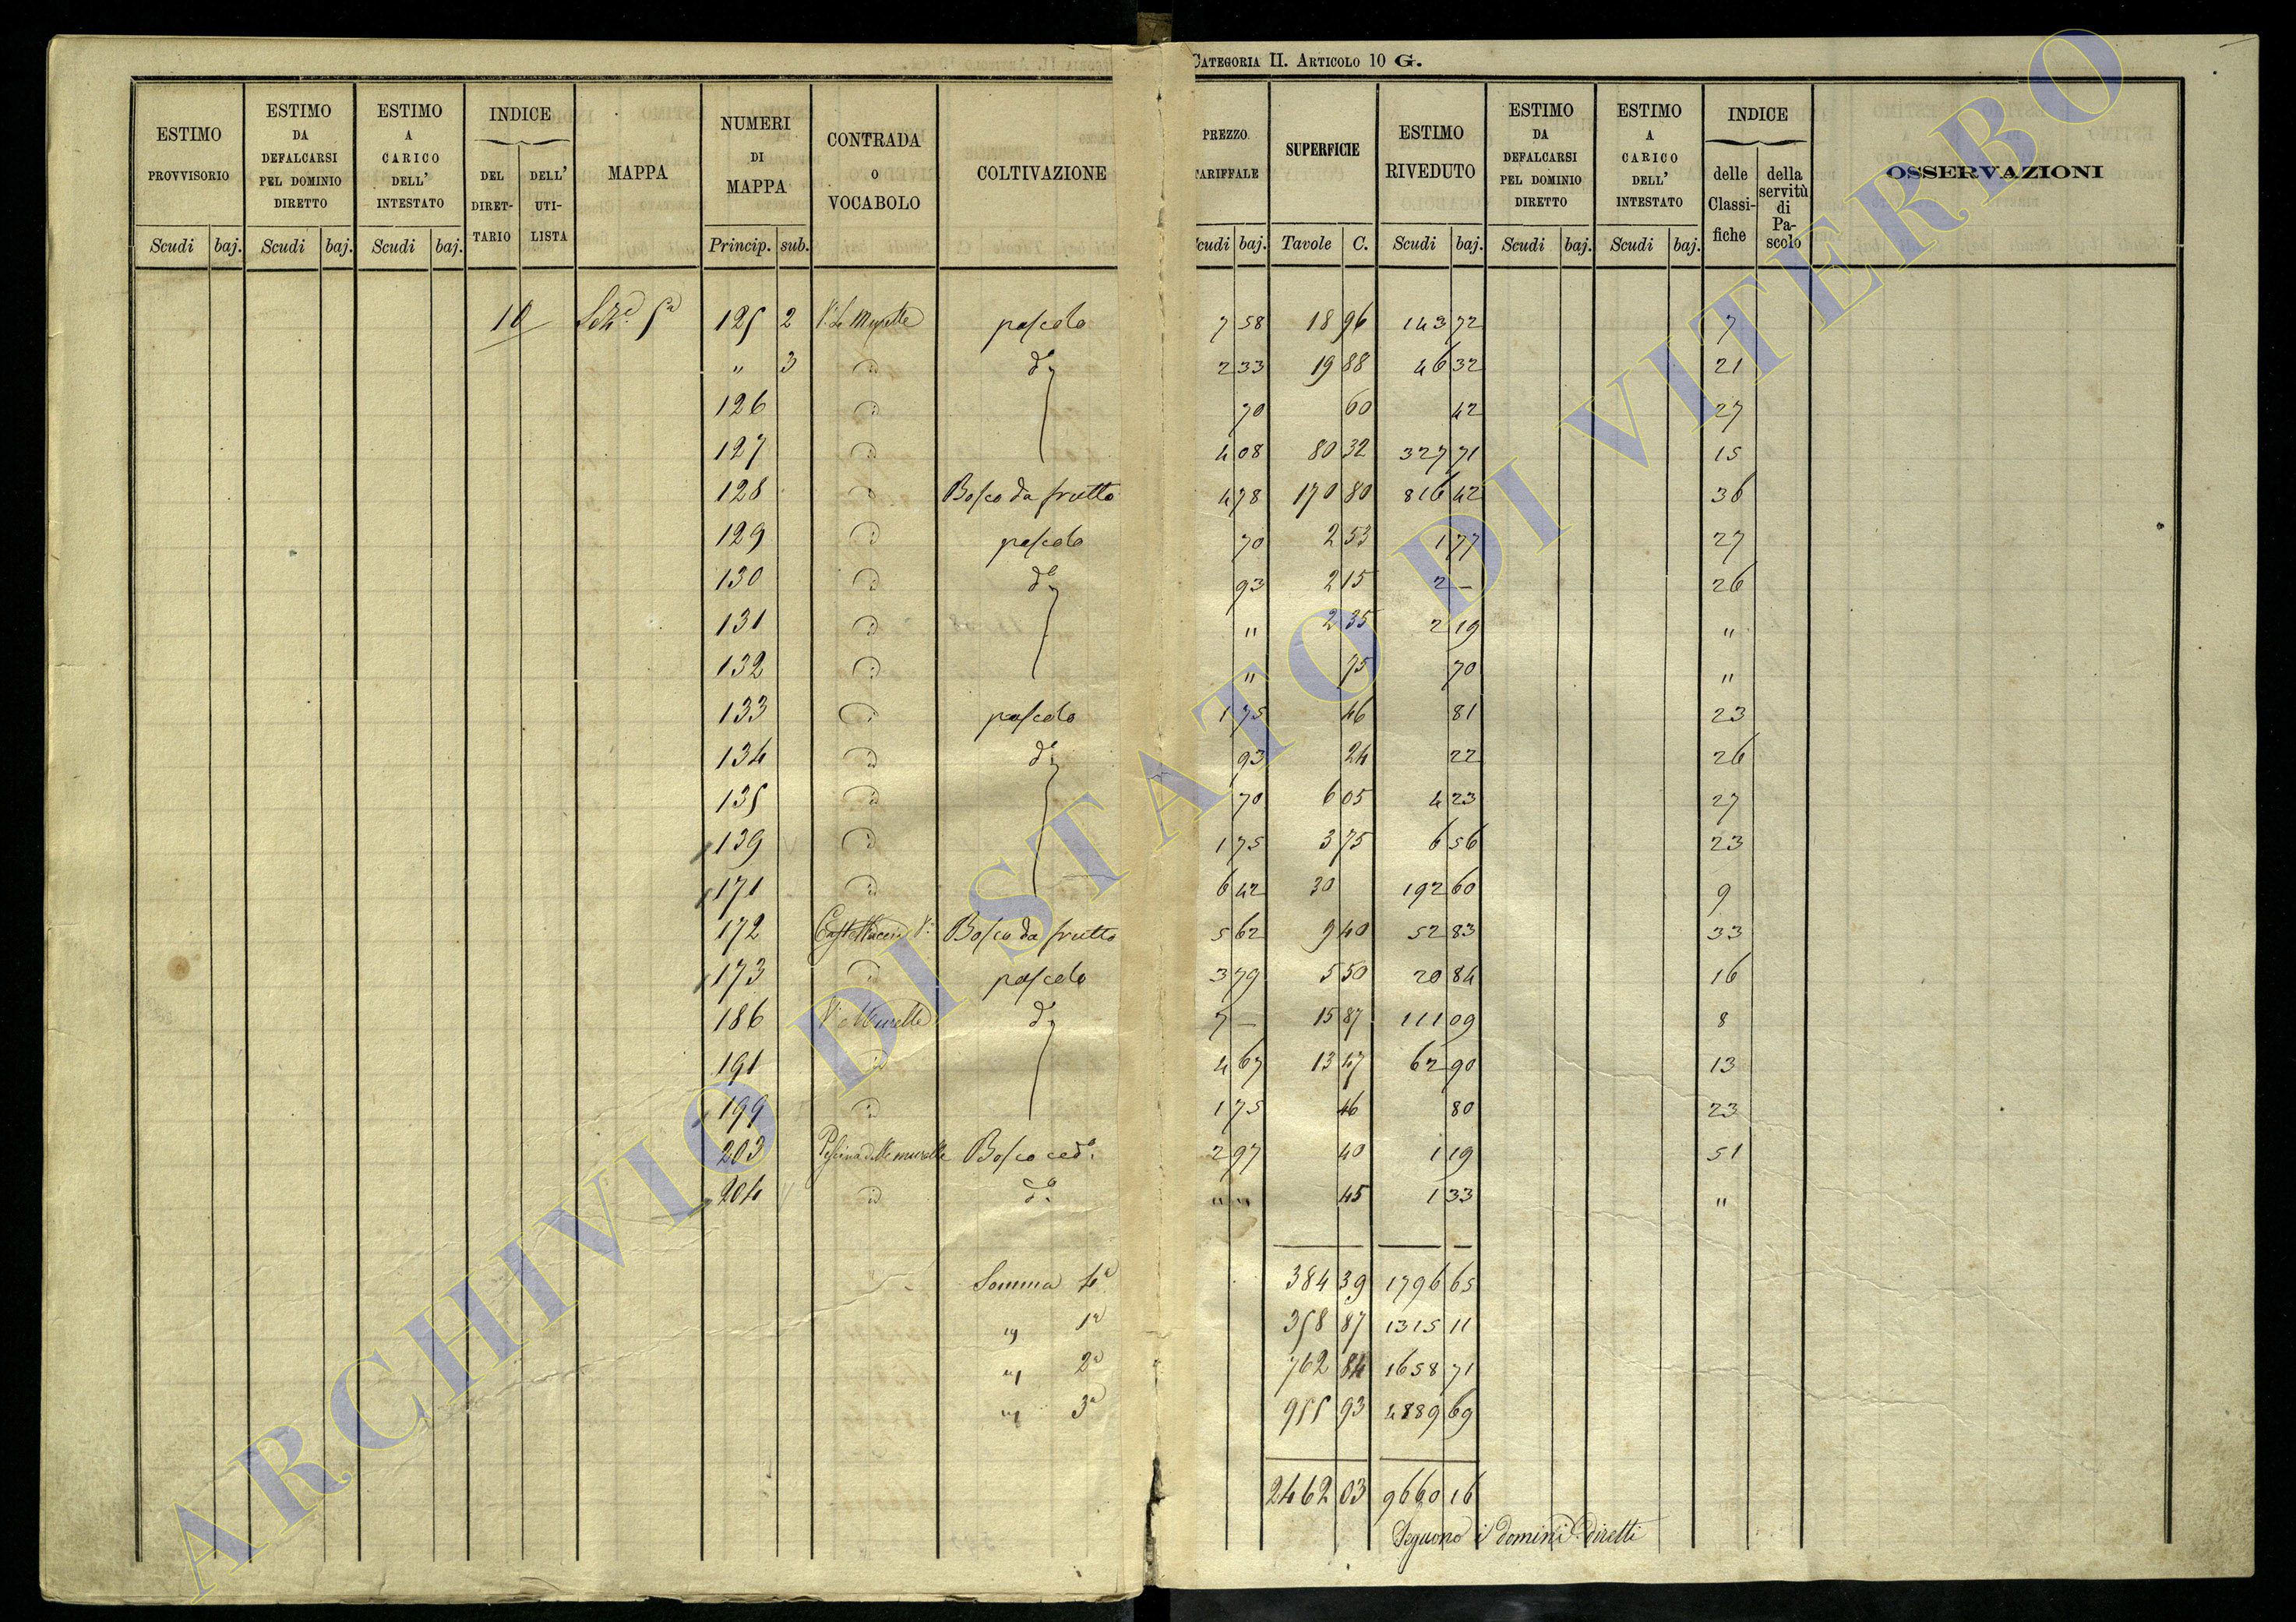 CATEGORIA II. ARTICOLO 10 G.
ESTIMO PROVVISORIO | ESTIMO DA DEFALCARSI PEL DOMINIO DIRETTO | ESTIMO A CARICO DELL' INTESTATO | INDICE DEL DIRETTARIO | DELL' UTILISTA | MAPPA | NUMERI DI MAPPA | CONTRADA O VOCABOLO | COLTIVAZIONE | PREZZO TARIFFALE | SUPERFICIE | ESTIMO RIVEDUTO | ESTIMO DA DEFALCARSI PEL DOMINIO DIRETTO | ESTIMO A CARICO DELL' INTESTATO | INDICE delle Classifiche | della servitù di Pascolo | OSSERVAZIONI
Scudi | baj. | Scudi | baj. | Scudi | baj. | Princip. | sub. | cudi | baj. | Tavole | C. | Scudi | baj. | Scudi | baj. | Scudi | baj.
10 | 5a | 125 | 2 | pascolo | 7 58 | 18 96 | 143 72 | 7
" | 3 | id | do | 2 33 | 19 88 | 46 32 | 21
126 | id | 70 | 60 | 42 | 27
127 | id | 4 08 | 80 32 | 327 71 | 15
128 | id | Bosco da frutto | 4 78 | 170 80 | 816 42 | 36
129 | id | pascolo | 70 | 2 53 | 1 77 | 27
130 | id | do | 93 | 2 15 | 2 — | 26
131 | id | " | 2 35 | 2 19 | "
132 | id | " | 75 | 70 | "
133 | id | pascolo | 1 75 | 46 | 81 | 23
134 | id | do | 93 | 24 | 22 | 26
135 | id | 70 | 6 05 | 4 23 | 27
139 | id | 1 75 | 3 75 | 6 56 | 23
171 | id | 6 42 | 30 | 192 60 | 9
172 | Bosco da frutto | 5 62 | 9 40 | 52 83 | 33
173 | id | pascolo | 3 79 | 5 50 | 20 84 | 16
186 | Murelle | do | 7 — | 15 87 | 111 09 | 8
191 | id | 4 67 | 13 47 | 62 90 | 13
199 | id | 1 75 | 46 | 80 | 23
203 | Pescina delle murelle | Bosco ced. | 2 97 | 40 | 1 19 | 51
204 | id | do | " " | 45 | 1 33 | "
Somma 4a | 384 39 | 1796 65
" 1a | 358 87 | 1315 11
" 2a | 762 84 | 1658 71
" 3a | 955 93 | 4889 69
2462 03 | 9660 16
Seguono i domini diretti
ARCHIVIO DI STATO DI VITERBO